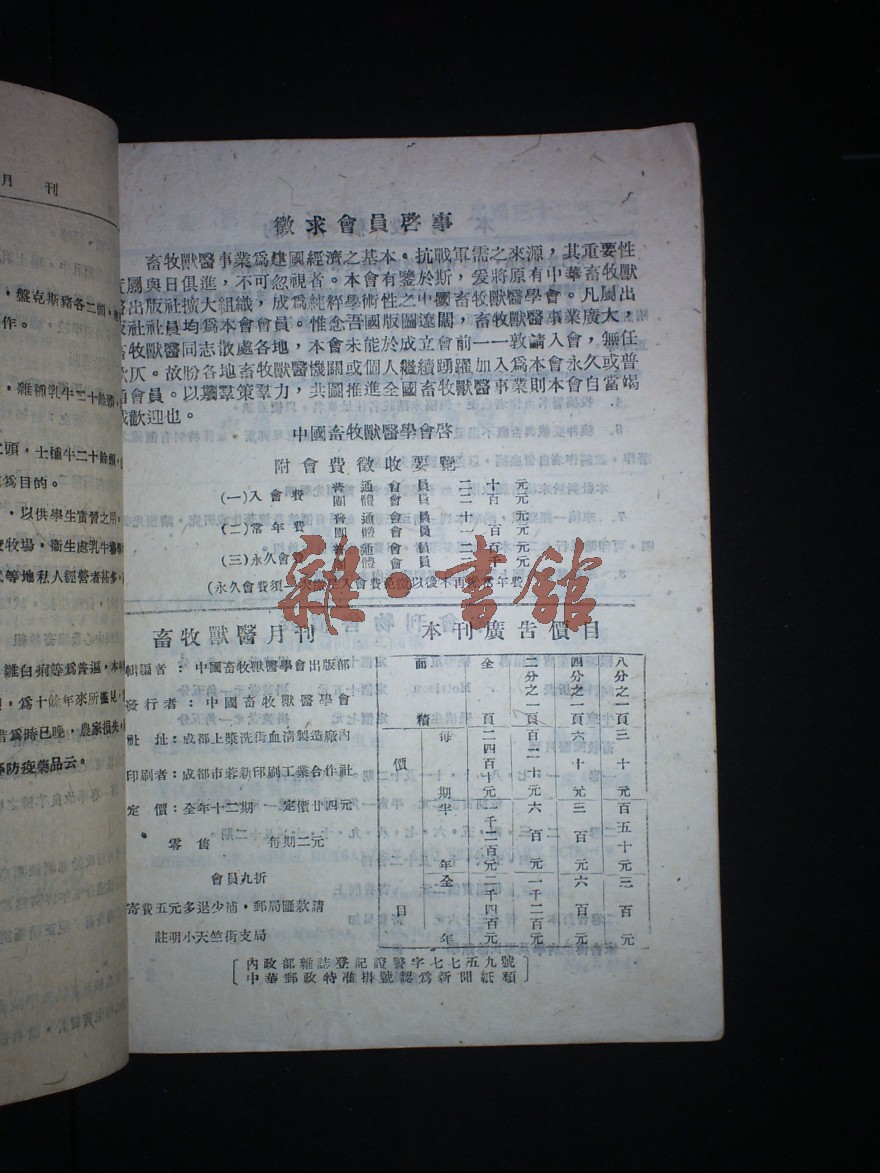 徵求會員啓事
畜牧獸醫事業爲建國經濟之基本。抗戰軍需之來源，其重要性
屬與日俱進，不可忽視者。本會有鑒於斯，爰將原有中華畜牧獸
出版社擴大組織，成爲純粹學術性之中國畜牧獸醫學會。凡屬出
社社員均爲本會會員。惟念吾國版圖遼闊，畜牧獸醫事業廣大，
牧獸醫同志散處各地，本會未能於成立會前一一敦請入會，無任
仄。故盼各地畜牧獸醫機關或個人繼續踴躍加入爲本會永久或普
會員。以羣策羣力，共圖推進全國畜牧獸醫事業則本會自當竭
歡迎也。
中國畜牧獸醫學會啓
附會費徵收要覽
(一)入會費 普通會員 二十元
團體會員 二百元
(二)常年費 普通會員 十元
團體會員 一百元
(三)永久會費 普通會員 二百元
團體會員 二千元
(永久會費須一次入會費免徵以後不再繳常年費
畜牧獸醫月刊
輯編者：中國畜牧獸醫學會出版部
發行者：中國畜牧獸醫學會
址：成都上漿洗街血清製造廠內
印刷者：成都市蓉新印刷工業合作社
定價：全年十二期 定價廿四元
零售 每期二元
會員九折
寄費五元多退少補，郵局匯款請
註明小天竺街支局
本刊廣告價目
面積 全頁 二分之一頁 四分之一頁 八分之一頁
價目 每期 二四百十元 百二十元 六十元 三十元
半年 千二百元 六百元 三百元 百五十元
全年 二千四百元 一千二百元 六百元 三百元
內政部雜誌登記證警字七七五九號
中華郵政特准掛號認爲新聞紙類
月刊
，盤克斯豬各二頭，
作。
，雜種乳牛二十餘頭，
頭，士種牛二十餘頭，
爲目的。
，以供學生實習之用，
牧場，衛生處乳牛場
等地私人經營者甚多，
雞白痢等爲普遍，本
，爲十餘年來所罕見，
爲時已晚，農家損失，
防疫藥品云。
雜·書館